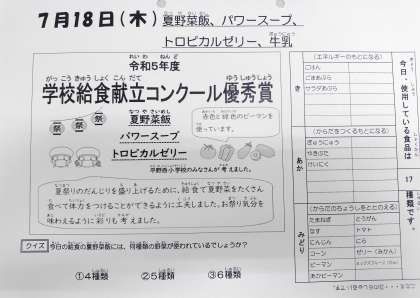 7月18日(木) 夏野菜飯、パワースープ、
トロピカルゼリー、牛乳
令和5年度
学校給食献立コンクール優秀賞
祭 祭 祭
夏野菜飯
パワースープ
トロピカルゼリー
赤色と緑色のピーマンを
使っています。
平野西小学校のみなさんが考えました。
夏祭りのだんじりを盛り上げるために、給食で夏野菜をたくさん
食べて体力をつけることができるように工夫しました。お祭り気分を
味わえるように彩りも考えました。
クイズ 今日の給食の夏野菜飯には、何種類の野菜が使われているでしょうか?
①4種類 ②5種類 ③6種類
今日、使用している食品は 17 種類です。
き
(エネルギーのもとになる)
ごはん
ごまあぶら
サラダあぶら
あか
(からだをつくるもとになる)
ぎゅうにゅう
やきぶた
けいにく
みどり
(からだのちょうしをととのえる)
たまねぎ とうがん
なす トマト
にんじん にら
コーン ゼリー(みかん)
ピーマン
あかピーマン